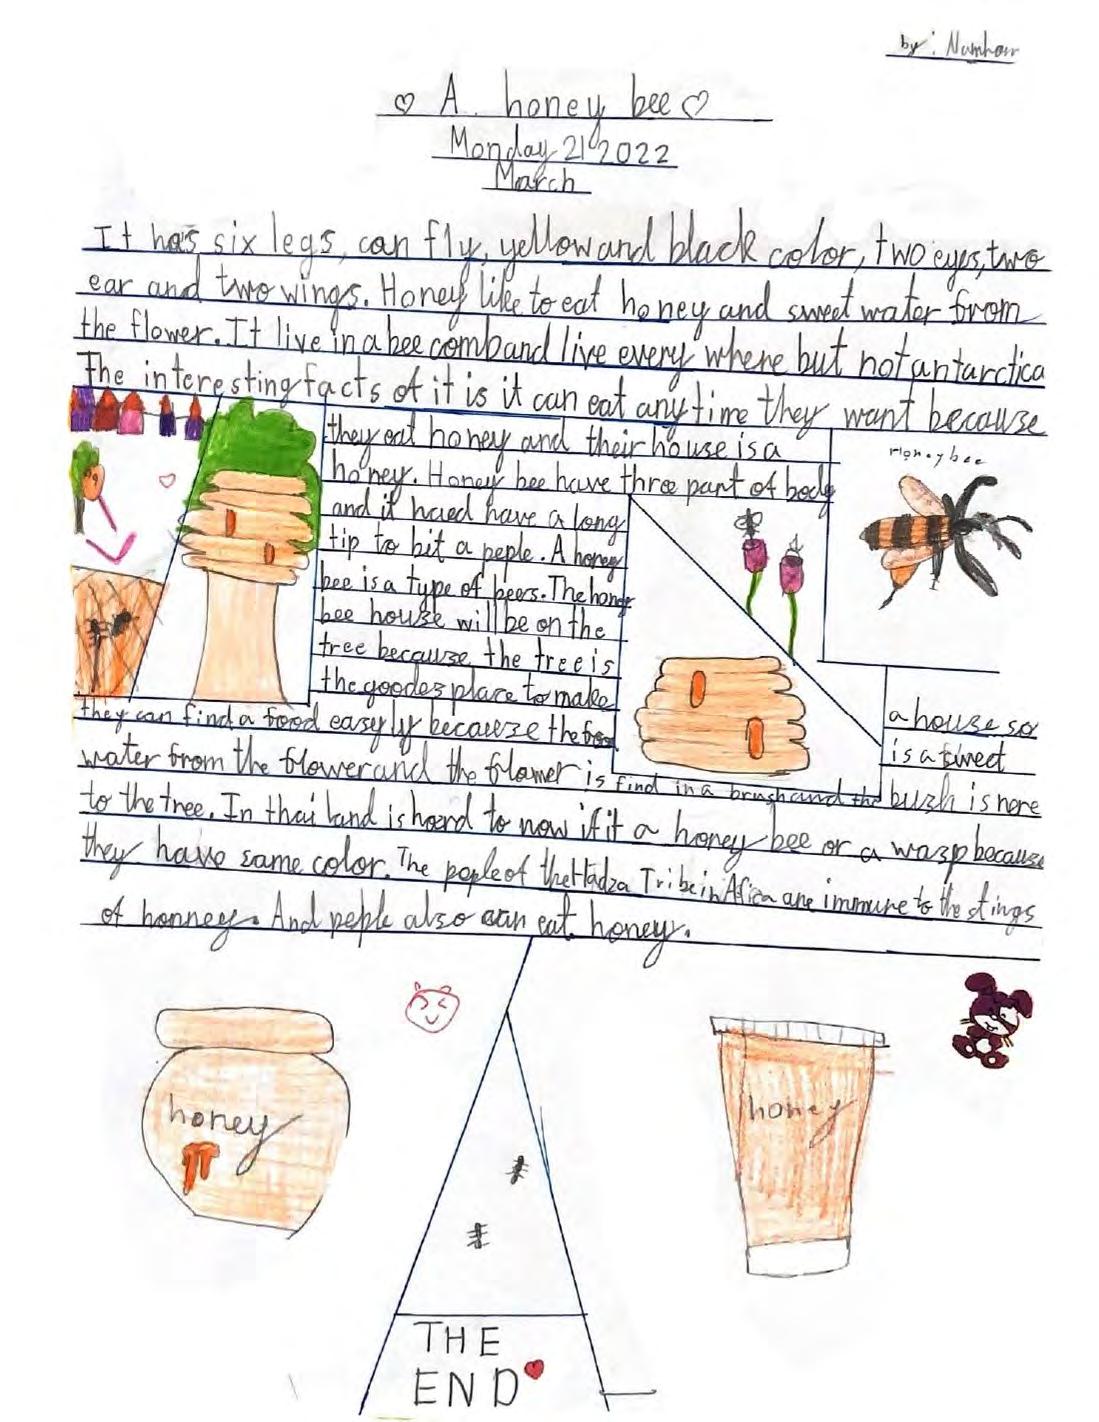 by: Numhom
♡ A honey bee ♡
Monday 21 2022
March
It has six legs, can fly, yellow and black color, two eyes, two
ear and two wings. Honey like to eat honey and sweet water from
the flower. It live in a bee comb and live every where but not antarctica
The interesting facts of it is it can eat any time they want because
they eat honey and their house is a
honey. Honey bee have three part of body
and it have a long
tip to bit a peple. A honey
bee is a type of beers. The honey
bee house will be on the
tree because the tree is
the goodes place to make
a house so
they can find a food easyly because the foo
is a sweet
water from the flower and the flower is find in a brush and the bush is nere
to the tree. In thai land is hoerd to now if it a honey bee or a wasp because
they have same color. The peple of the Hadza Tribe in Africa are immune to the stings
of honney. And peple also can eat honey.
Honey bee
honey
honey
THE
END